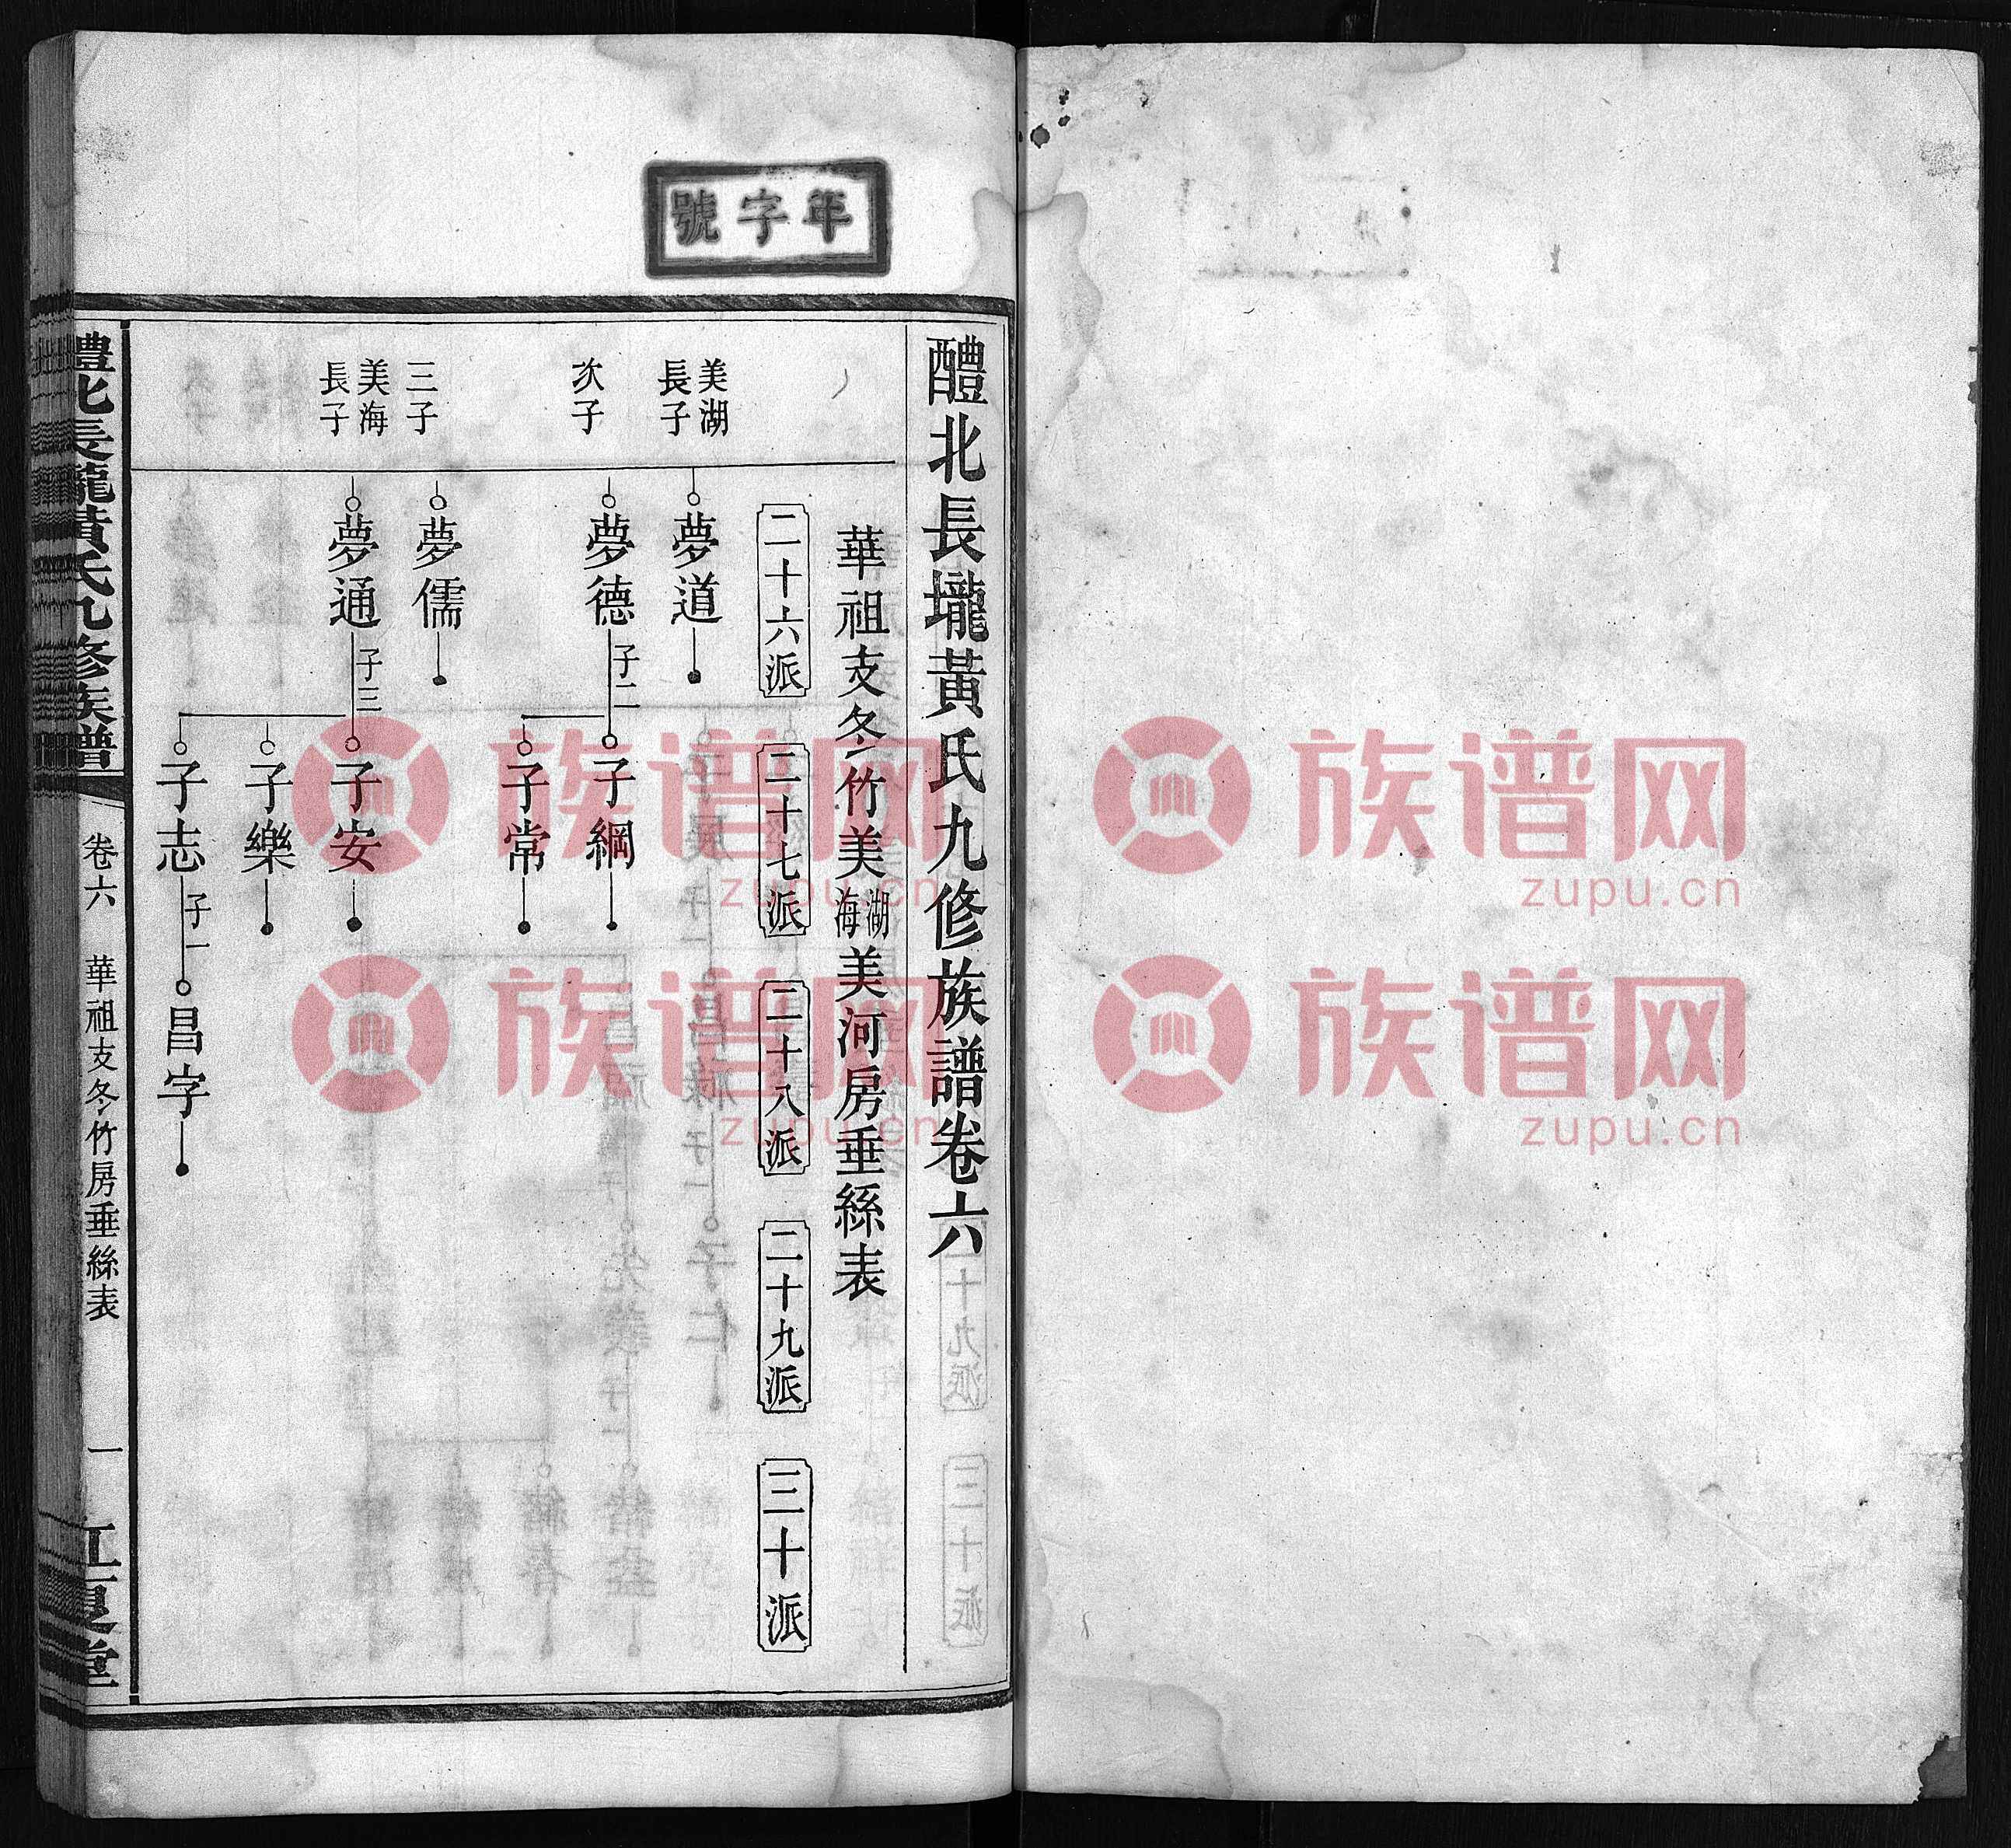 年字號
醴北長壠黃氏九修族譜卷六
華祖支冬竹美湖海美河房垂絲表
二十六派
二十七派
二十八派
二十九派
三十派
美湖長子
夢道
次子
夢德
子二
子綱
子常
三子
夢儒
美海長子
夢通
子三
子安
子樂
子志
子一
昌字
醴北長壠黃氏九修族譜
卷六
華祖支冬竹房垂絲表
一
江夏堂
族谱网
zupu.cn
族谱网
zupu.cn
族谱网
zupu.cn
族谱网
zupu.cn